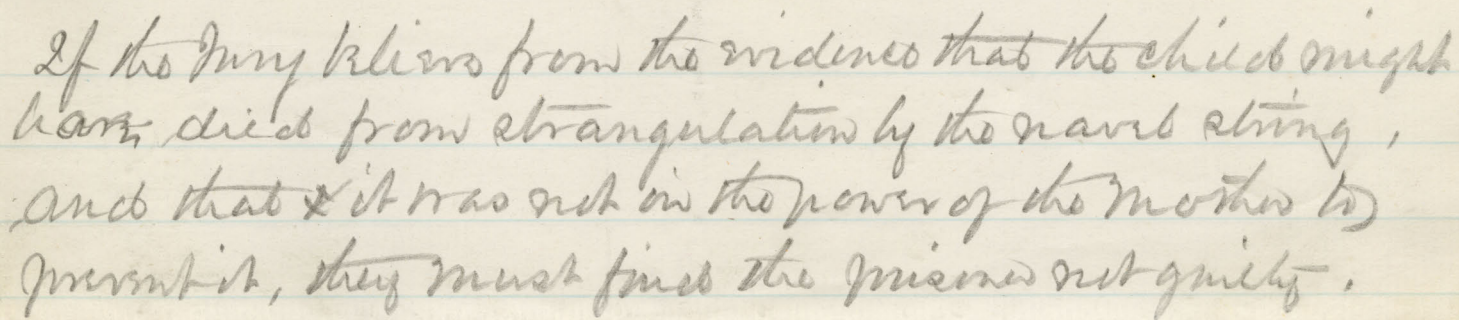 If the Jury believe from the evidence that the child might
have died from strangulation by the navel string,
and that it was not in the power of the Mother to
prevent it, they must find the prisoner not guilty.